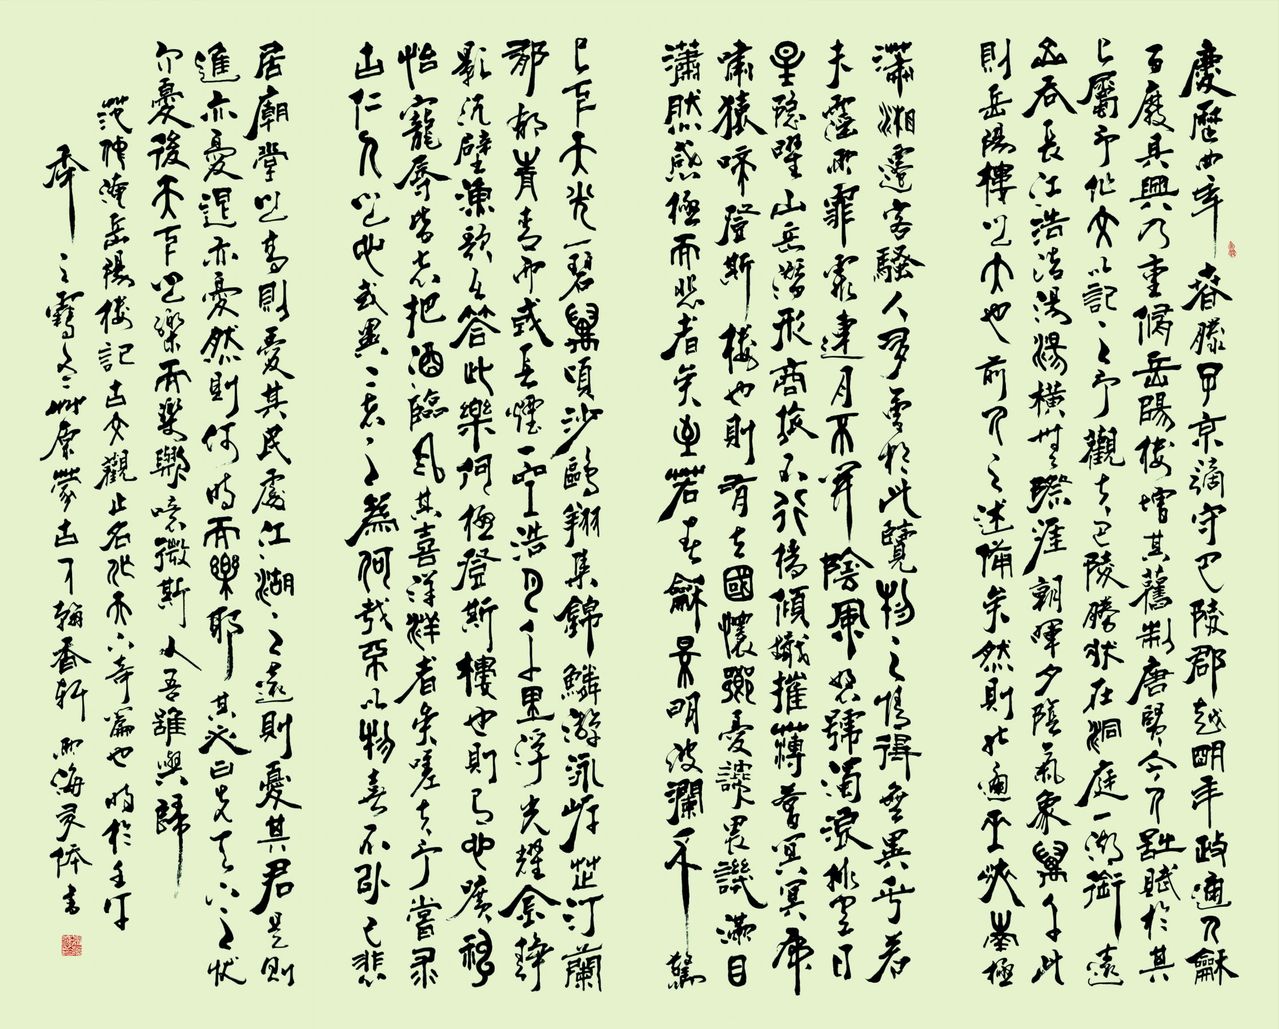 慶歷四年春滕子京謫守巴陵郡越明年政通人龢
百廢具興乃重脩岳陽樓增其舊制唐賢今人詩賦於其
上屬予作文以記之予觀夫巴陵勝狀在洞庭一湖銜遠
山吞長江浩浩湯湯橫無際涯朝暉夕陰氣象萬千此
則岳陽樓之大也前人之述備矣然則北通巫峽南極
瀟湘遷客騷人多會於此覽物之情得無異乎若
夫霪雨霏霏連月不開陰風怒號濁浪排空日
星隱曜山岳潛形商旅不行檣傾檝摧薄暮冥冥虎
嘯猿啼登斯樓也則有去國懷鄉憂讒畏譏滿目
瀟然感極而悲者矣至若春龢景明波瀾不驚
上下天光一碧萬頃沙鷗翔集錦鱗游泳岸芷汀蘭
郁郁青青而或長煙一空浩月千里浮光耀金靜
影沉璧漁歌互答此樂何極登斯樓也則有心曠神
怡寵辱皆忘把酒臨風其喜洋洋者矣嗟夫予嘗求
古仁人之心或異二者之為何哉不以物喜不以己悲
居廟堂之高則憂其民處江湖之遠則憂其君是則
進亦憂退亦憂然則何時而樂耶其必曰先天下之
而憂後天下之樂而樂歟噫微斯人吾誰與歸
范仲淹岳陽樓記古文觀止名作天下奇篇也時於
春之草原蒙古翰香軒海書